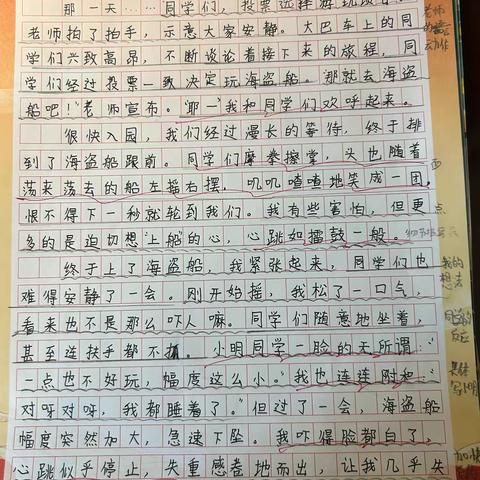 那一天……同学们，投票选择游玩项目
老师拍了拍手，示意大家安静。大巴车上的同
学们兴致高昂，不断谈论着接下来的旅程，同
学们经过投票一致决定玩海盗船。“那就去海盗
船吧！”老师宣布。“耶——”我和同学们欢呼起来。
很快入园，我们经过漫长的等待，终于排
到了海盗船跟前。同学们摩拳擦掌，头也随着
荡来荡去的船左摇右摆，叽叽喳喳地笑成一团，
恨不得下一秒就轮到我们。我有些害怕，但更
多的是迫切想“上船”的心，心跳如擂鼓一般。
终于上了海盗船，我紧张起来，同学们也
难得安静了一会。刚开始摇，我松了一口气，
看来也不是那么吓人嘛。同学们随意地坐着，
甚至连扶手都不抓。小明同学一脸的无所谓：“
一点也不好玩，幅度这么小。”我也连连附和：“
对呀对呀，我都睡着了。”但过了一会，海盗船
幅度突然加大，急速下坠。我吓得脸都白了，
心跳似乎停止，失重感卷地而出，让我几乎失
老师
的
动作
面
点
我的
想法
同学的
反应
具体
写小明
加快